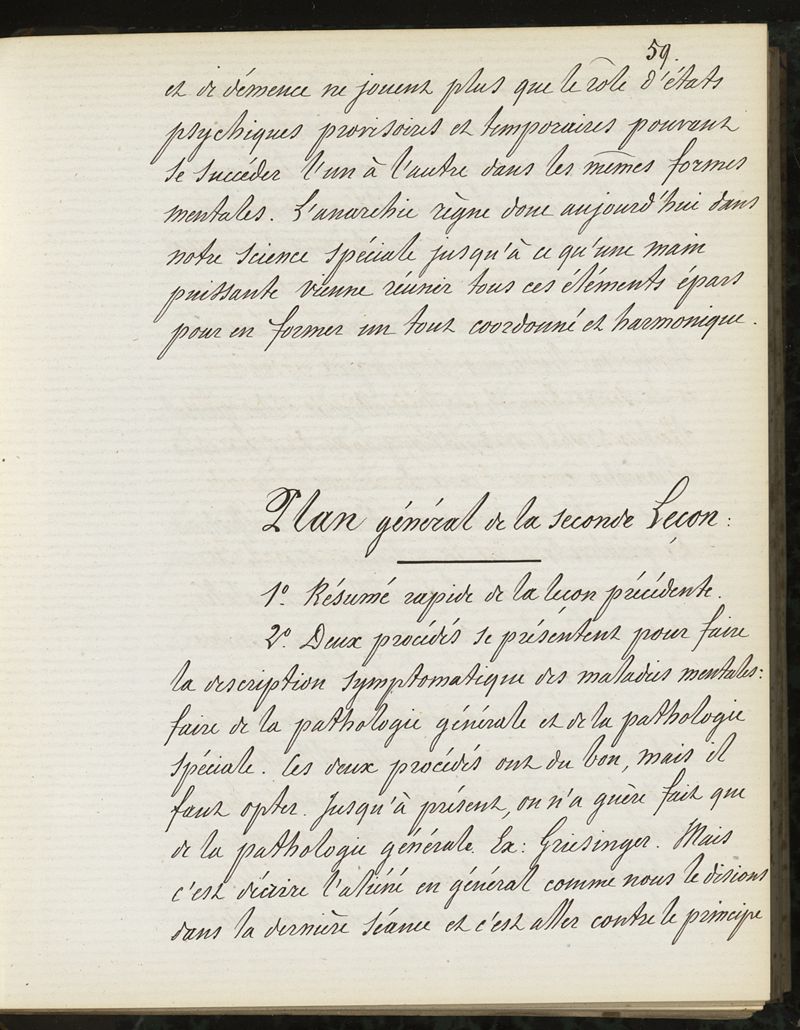 59.
et de démence ne jouent plus que le rôle d'états
psychiques provisoires et temporaires pouvant
se succéder l'un à l'autre dans les mêmes formes
mentales. L'anarchie règne donc aujourd'hui dans
notre science spéciale jusqu'à ce qu'une main
puissante vienne réunir tous ces éléments épars
pour en former un tout coordonné et harmonique.
Plan général de la seconde Leçon :
1º. Résumé rapide de la leçon précédente.
2º. Deux procédés se présentent pour faire
la description symptomatique des maladies mentales :
faire de la pathologie générale et de la pathologie
spéciale. Ces deux procédés ont du bon, mais il
faut opter. Jusqu'à présent, on n'a guère fait que
de la pathologie générale. Ex : Griesinger. Mais
c'est décrire l'aliéné en général comme nous le disions
dans la dernière séance et c'est aller contre le principe